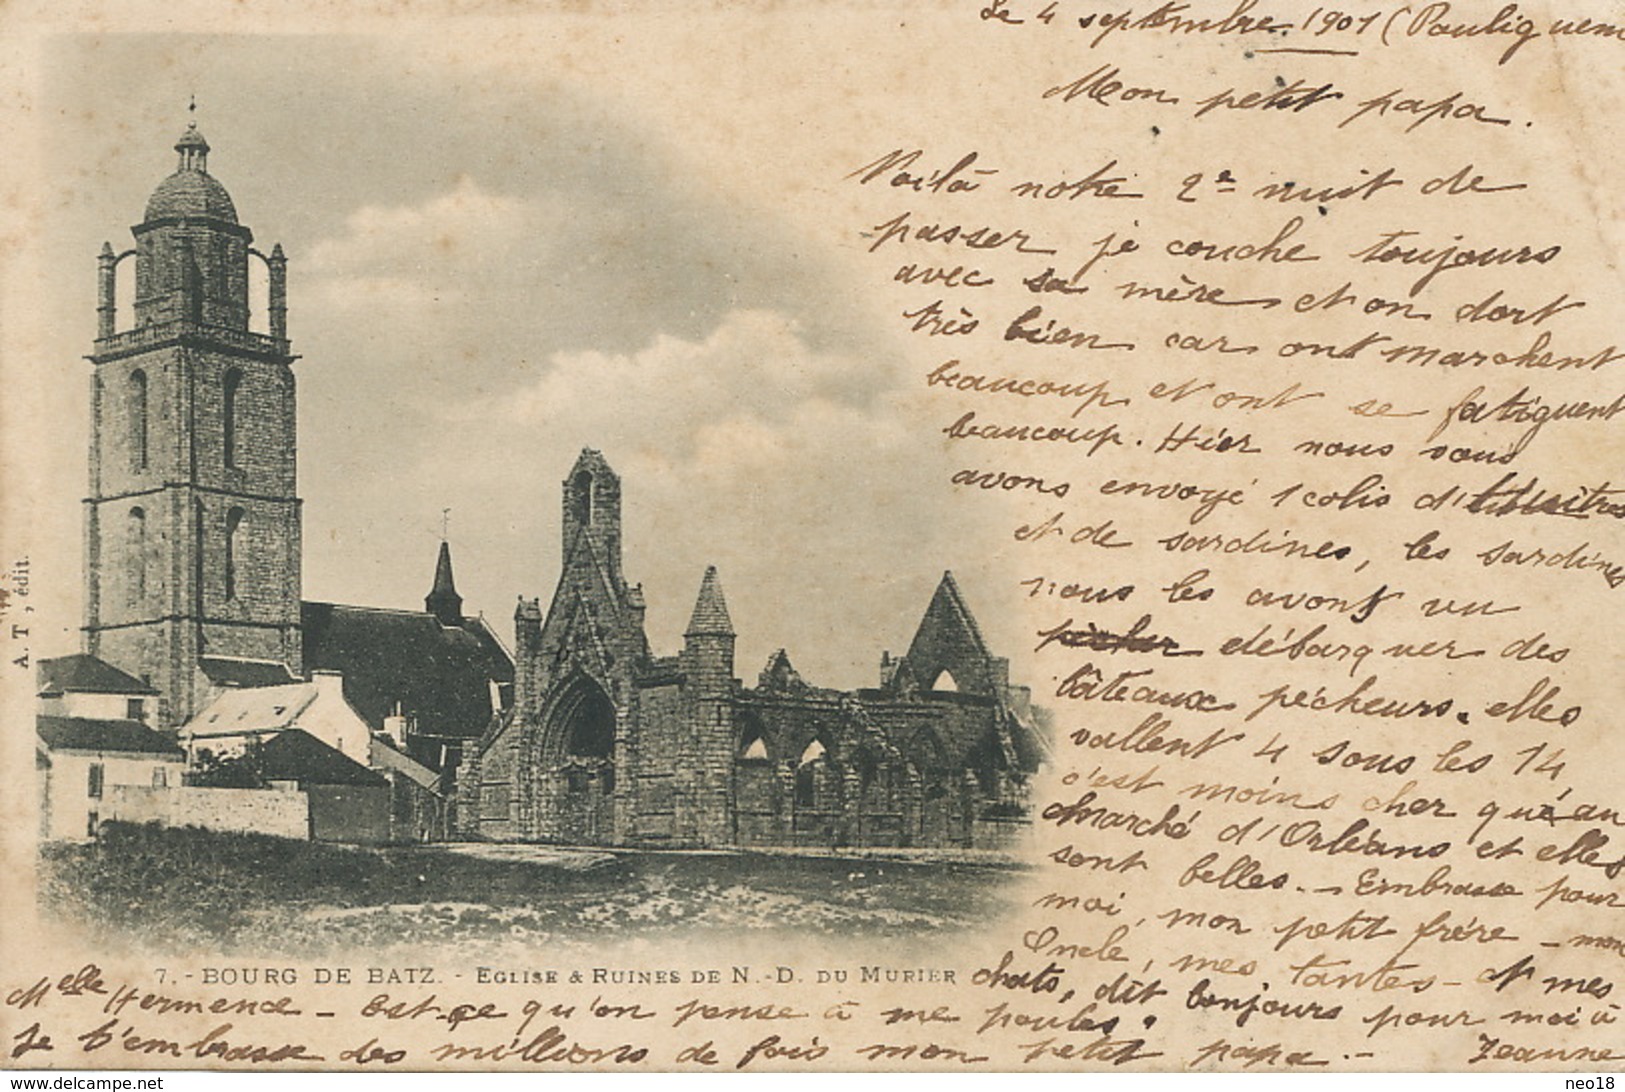 Le 4 septembre. 1901 (Pouliguen
Mon petit papa.
Voilà notre 2e nuit de
passer je couche toujours
avec sa mère et on dort
très bien car ont marchent
beaucoup et ont se fatiguent
beaucoup. Hier nous vous
avons envoyé 1 colis d'
et de sardines, les sardines
nous les avont vu
débarquer des
bâteaux pécheurs. elles
vallent 4 sous les 14
c'est moins cher qu'au
marché d'Orléans et elles
sont belles. - Embrasse pour
moi, mon petit frére - mon
Oncle, mes tantes - et mes
chats, dit bonjours pour moi à
Melle Hermence - Est-ce qu'on pense à me poules.
Je t'embrasse des millions de fois mon petit papa. - Jeanne
7. - BOURG DE BATZ. - EGLISE & RUINES DE N.-D. DU MURIER
A. T, édit.
delcampe.net
neo18